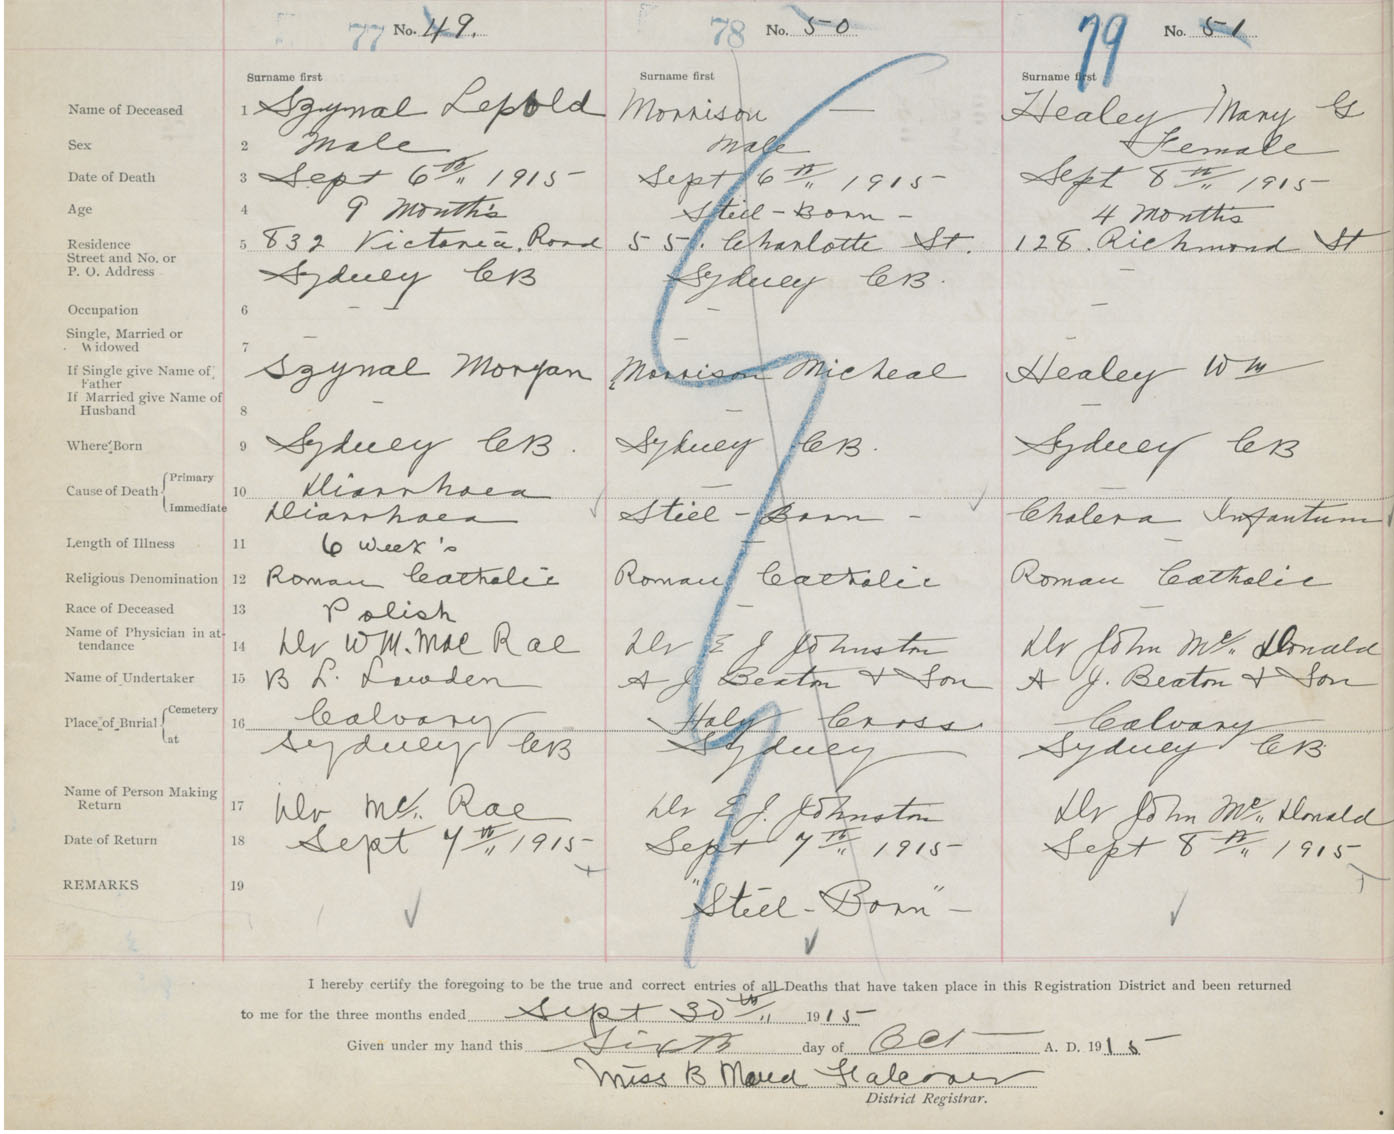 77 No. 49.
78 No. 50
79 No. 51
Surname first
Surname first
Surname first
Name of Deceased 1 Szynal Lepold Morrison — Healey Mary G
Sex 2 Male Male Female
Date of Death 3 Sept 6th 1915 Sept 6th 1915 Sept 8th 1915
Age 4 9 Months Steel-Born - 4 Months
Residence
Street and No. or
P. O. Address
5 832 Victoria Road 55. Charlotte St. 128. Richmond St
Sydney CB Sydney CB. —
Occupation 6 — — — —
Single, Married or
Widowed
7 — — —
If Single give Name of
Father
Szynal Morgan Morrison Micheal Healey Wm
If Married give Name of
Husband
8 — — —
Where Born 9 Sydney CB. Sydney CB. Sydney CB
Cause of Death Primary 10 Diarrhoea —
Immediate Diarrhoea Steel-Born - Cholera Infantum
Length of Illness 11 6 Week's — —
Religious Denomination 12 Roman Catholic Roman Catholic Roman Catholic
Race of Deceased 13 Polish — —
Name of Physician in at-
tendance
14 Dr WM. Mac Rae Dr E J Johnston Dr John Mc Donald
Name of Undertaker 15 B L. Lowden A J Beaton & Son A J. Beaton & Son
Place of Burial Cemetery 16 Calvary Holy Cross Calvary
at Sydney CB Sydney Sydney CB
Name of Person Making
Return
17 Dr Mc Rae Dr E J. Johnston Dr John Mc Donald
Date of Return 18 Sept 7th 1915 Sept 7th 1915 Sept 8th 1915
REMARKS 19 "Steel-Born" —
I hereby certify the foregoing to be the true and correct entries of all Deaths that have taken place in this Registration District and been returned
to me for the three months ended Sept 30th 1915
Given under my hand this Sixth day of Oct A. D. 1915
Miss B Maud Falconer
District Registrar.